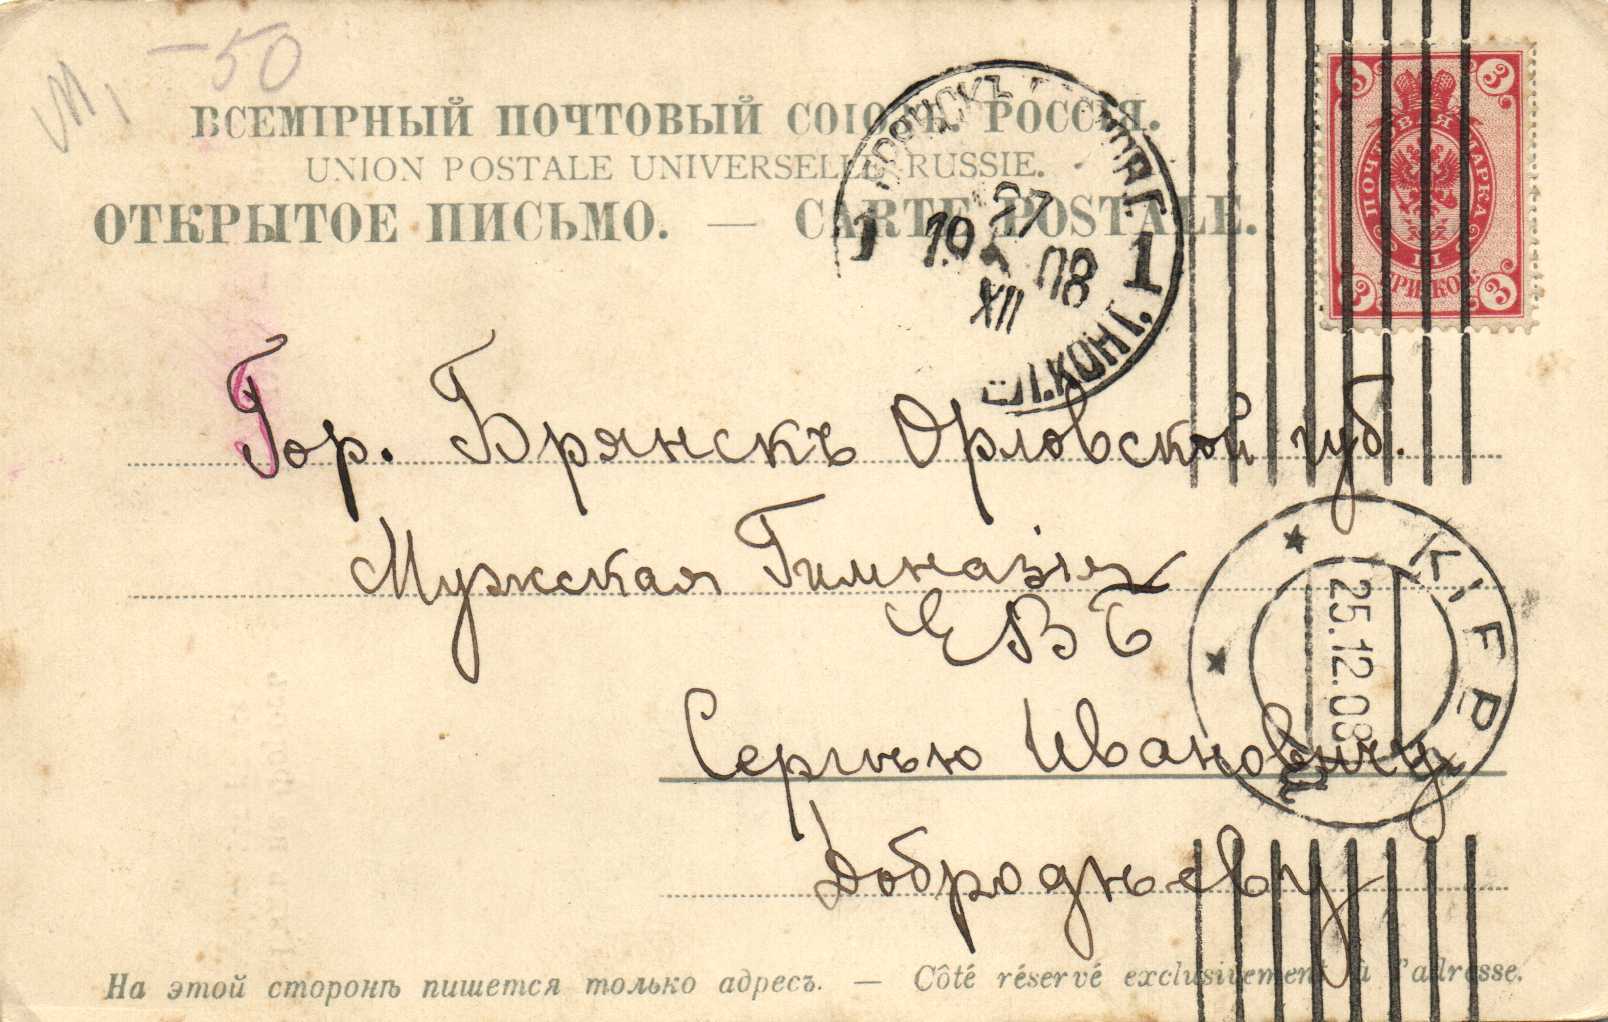 М, —50
ВСЕМІРНЫЙ ПОЧТОВЫЙ СОЮЗЪ. РОССІЯ.
UNION POSTALE UNIVERSELLE. RUSSIE.
ОТКРЫТОЕ ПИСЬМО. — CARTE POSTALE.
БРЯНСКЪ
1 27 1
19 08
XII
ПОЧ.КОНТ.
3 3
ПОЧТОВАЯ МАРКА
ТРИ КОП.
3 3
Гор. Брянскъ Орловской губ.
Мужская Гимназія
ЕВБ
Сергѣю Ивановичу
Добродѣеву
25.12.08
На этой сторонѣ пишется только адресъ. — Côté réservé exclusivement à l'adresse.